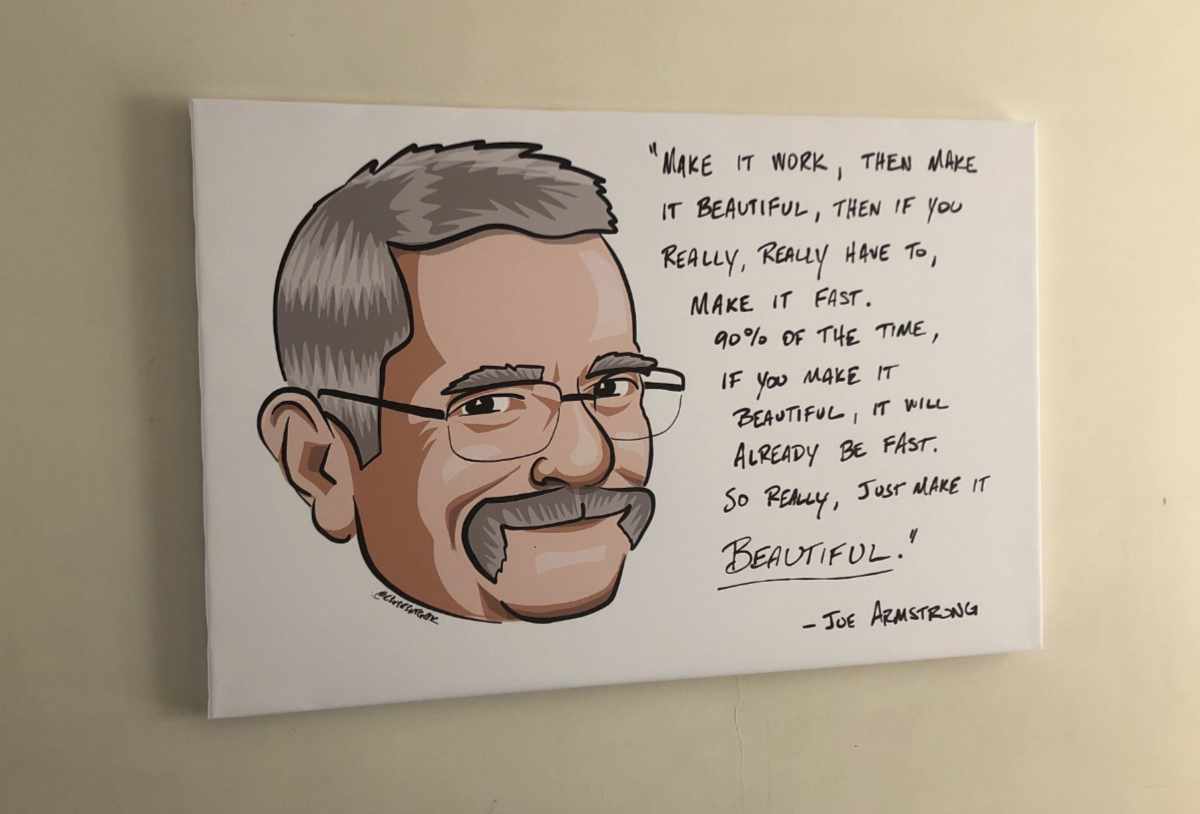 "MAKE IT WORK, THEN MAKE
IT BEAUTIFUL, THEN IF YOU
REALLY, REALLY HAVE TO,
MAKE IT FAST.
90% OF THE TIME,
IF YOU MAKE IT
BEAUTIFUL, IT WILL
ALREADY BE FAST.
SO REALLY, JUST MAKE IT
BEAUTIFUL."
- JOE ARMSTRONG